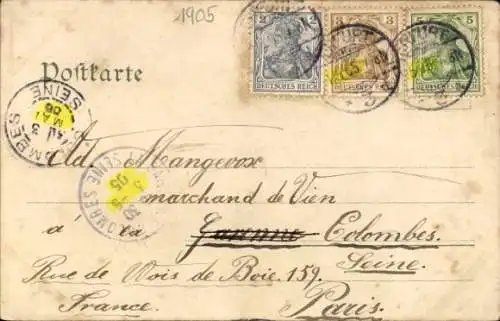 1905
Postkarte
2 2
3 3
5 5
DEUTSCHES REICH
DEUTSCHES REICH
DEUTSCHES REICH
SEINE
MAI
05
COLOMBES SEINE
05
Old. Mangevox
marchand de Vien
à la Garenne Colombes.
Seine.
Rue de Wois de Boie. 159.
France. Paris.